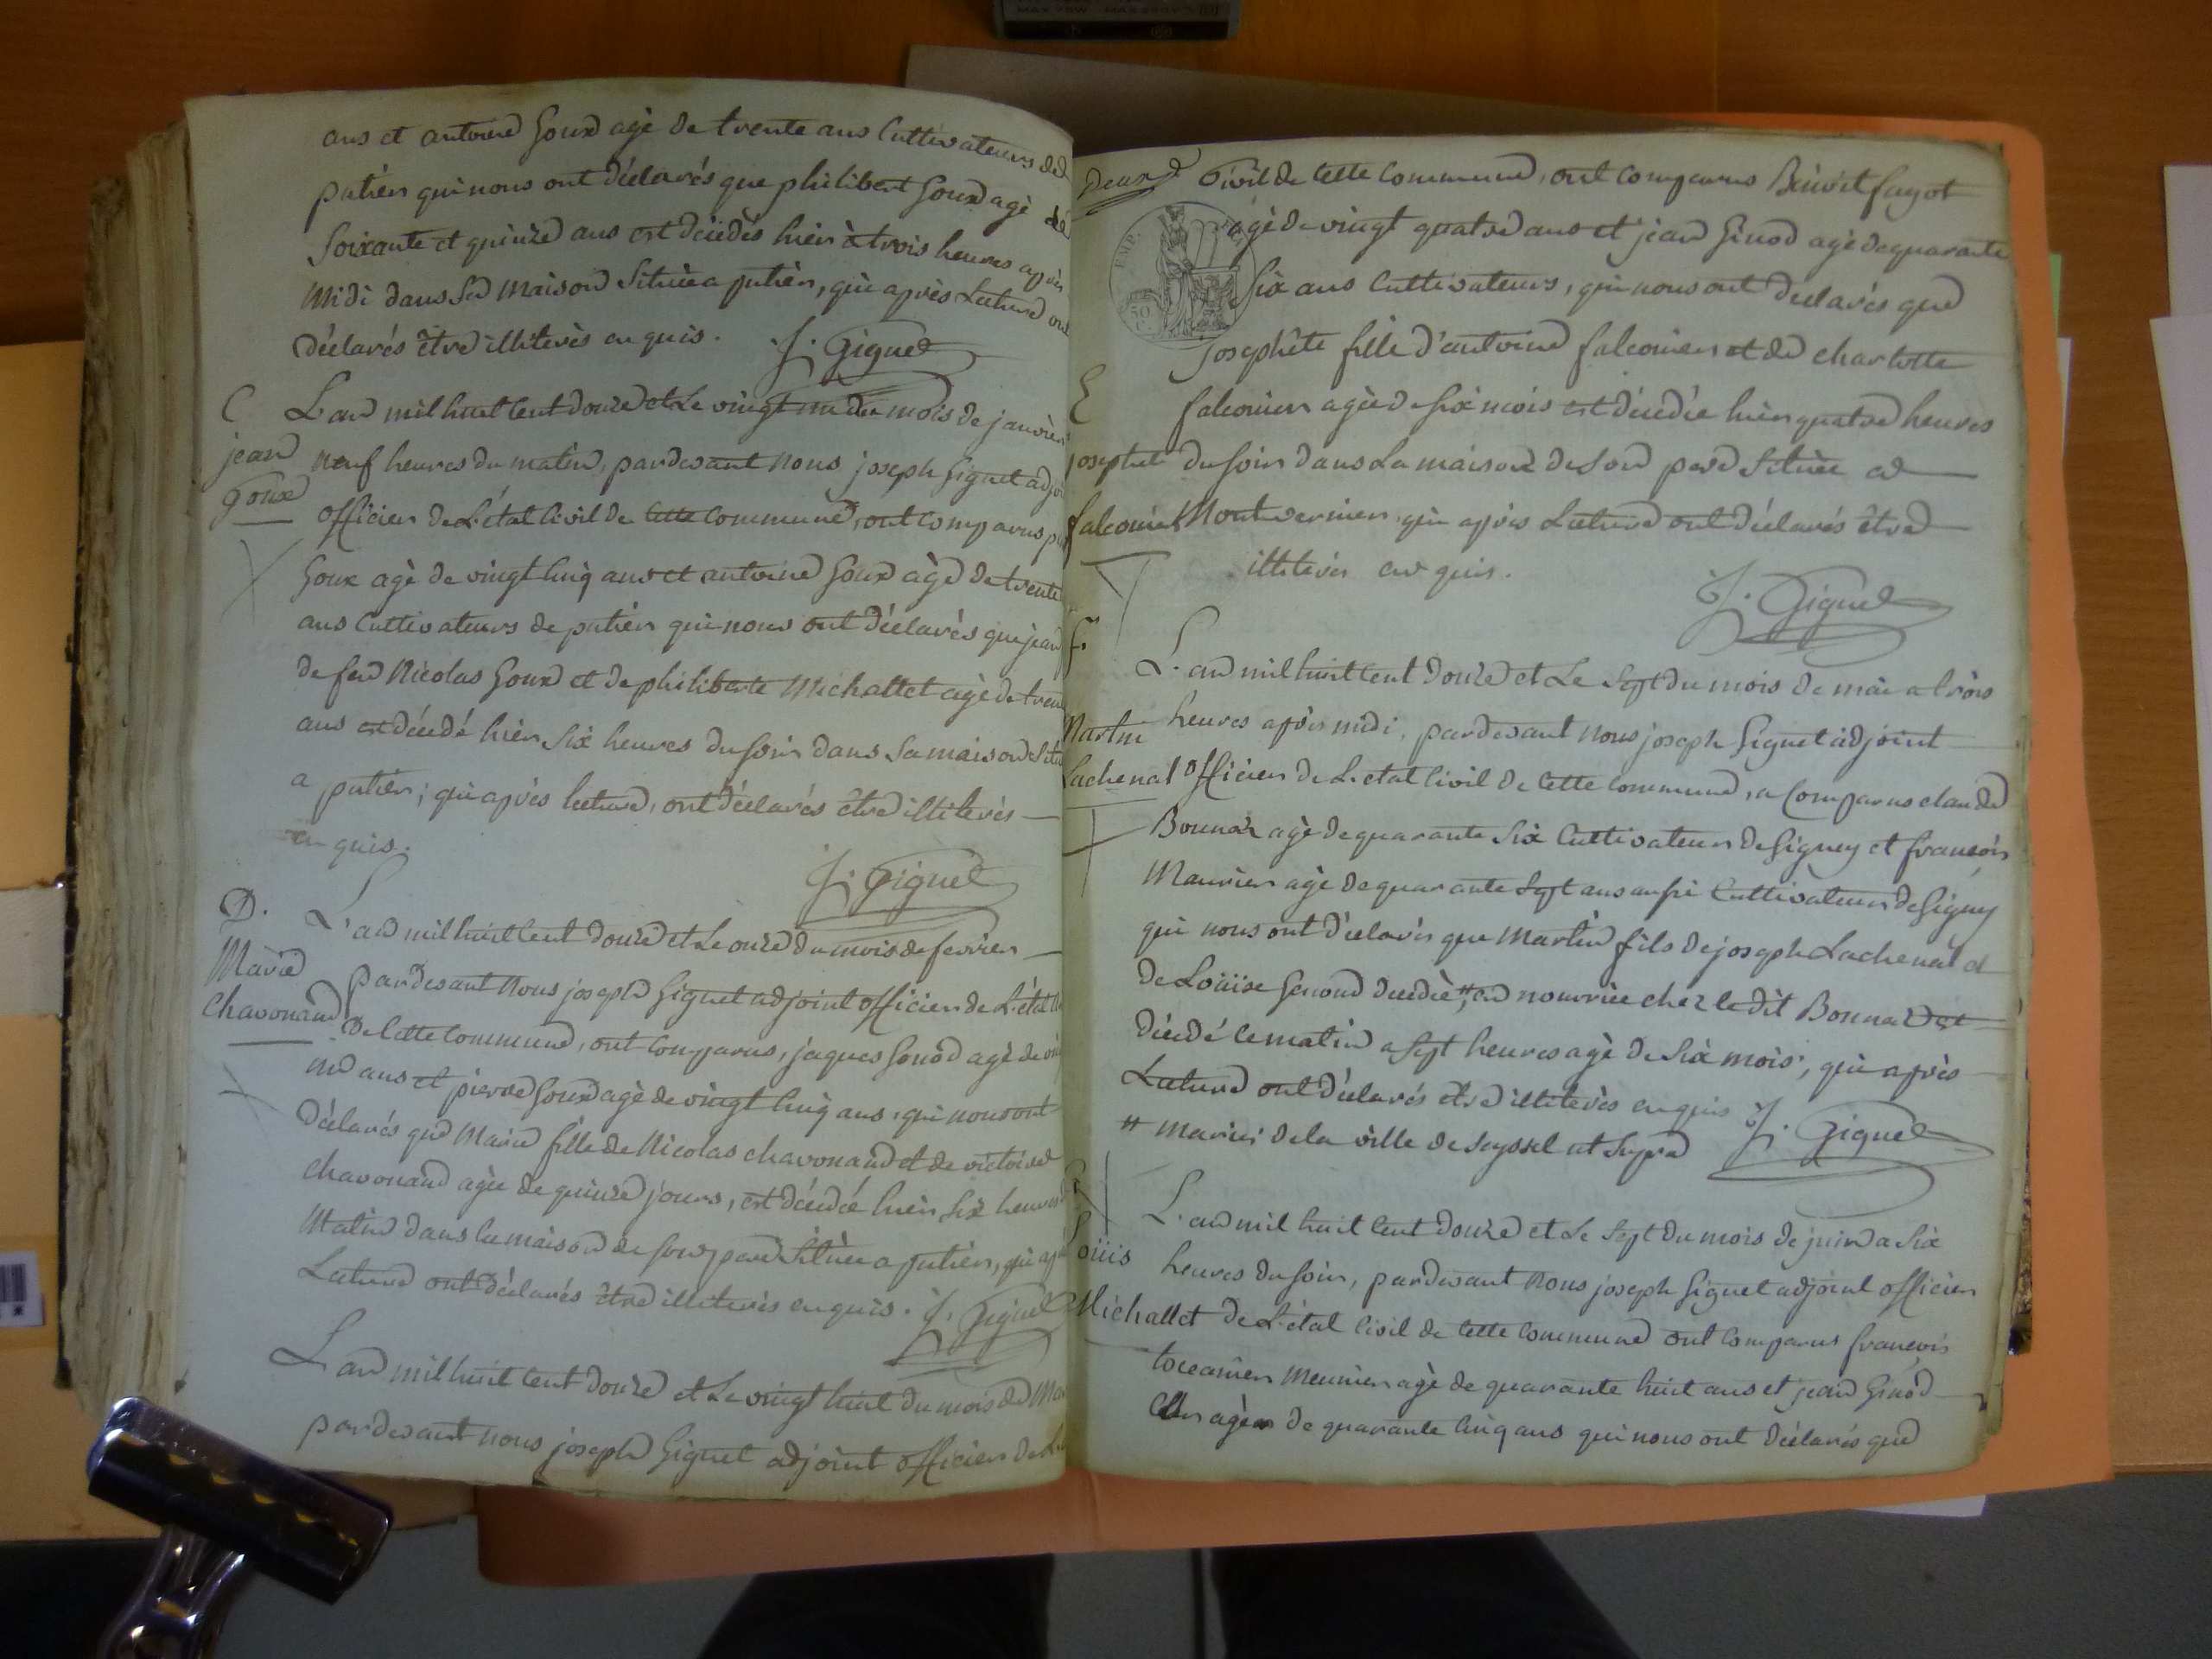 ans et antoine Goux agè de trente ans Cultivateurs de
putier qui nous ont déclarés que philibert Goux agè de
Soixante et quinze ans est décédés hièr à trois heures après
Midi dans Sa Maison Situèe a putièr, qui après Lecture ont
déclarés être illiterès enquis. J. Giguet
C L'an mil huit Cent douze et Le vingt un du mois de janvier
jean Neuf heures du matin, pardevant Nous joseph Giguet adjoi
Goux officier de L'état Civil de Cette Commune, ont Comparus
Goux agè de vingt Cinq ans et antoine Goux agè de trente
ans Cultivateurs de putièr qui nous ont déclarès que jean
de feu Nicolas Goux et de philiberte Michallet agè de tren
ans est décédé hièr Six heures du Soir dans Sa maison Situ
a putièr; qui après lecture, ont déclarés être illiterés
enquis.
J. Giguet
D. L'an mil huit Cent douze et Le onze du mois de fevrier
Marie pardevant Nous joseph Giguet adjoint officier de L'état
Chavonand De Cette Commune, ont Comparus, jaques Genod agè de
une ans et pierre Goux agè de vingt Cinq ans, qui nous ont
déclarés que Marie fille de Nicolas chavonand et de victoire
chavonand agèe de quinze jours, est décédé hièr Six heures
Matin dans la maison de Son pere Situèe a putièr, qui ap
Lecture ont déclarés être illiterés enquis. J. Giguet
L'an mil huit Cent douze et Le vingt huit du mois de Mar
pardevant nous joseph Giguet adjoint officier de L'é
deux Civil de Cette Commune, ont Comparus Benoit fagot
agè de vingt quatre ans et jean Ginod agè de quarante
Six ans Cultivateurs, qui nous ont declarés que
EMP.
50
josephète fille d'antoine falconier et de charlotte
E falconier agèe de Six mois est décédée hièr quatre heures
josephet du Soir dans La maison de Son pere Situèe a
falconier Montvernier, qui après Lecture ont déclarés être
illiterés enquis.
J. Giguet
f.
L'an mil huit Cent douze et Le Sept du mois de mai a trois
Martin heures après midi, pardevant Nous joseph Giguet adjoint
Lachenal officier de L'etat Civil de Cette Commune, a Comparus claude
Bonnaz agè de quarante Six Cultivateur de Gigney et françois
Maurier agè de quarante Sept ans aussi Cultivateur de Gigney
qui nous ont déclarés que Martin fils de joseph Lachenal et
de Loüise Genoud décédé #, en nourrice chez le dit Bonnaz est
décédé Ce matin a Sept heures agè de Six mois; qui après
Lecture ont déclarés etre illiterès enquis J. Giguet
# mariés de la ville de Seyssel ut Supra
L'an mil huit Cent douze et Le Sept du mois de juin a Six
Loüis heures du Soir, pardevant Nous joseph Giguet adjoint officier
Michallet de L'état Civil de Cette Commune ont Comparus françois
Meunier agè de quarante huit ans et jean Ginod
agèr de quarante Cinq ans qui nous ont déclarés que